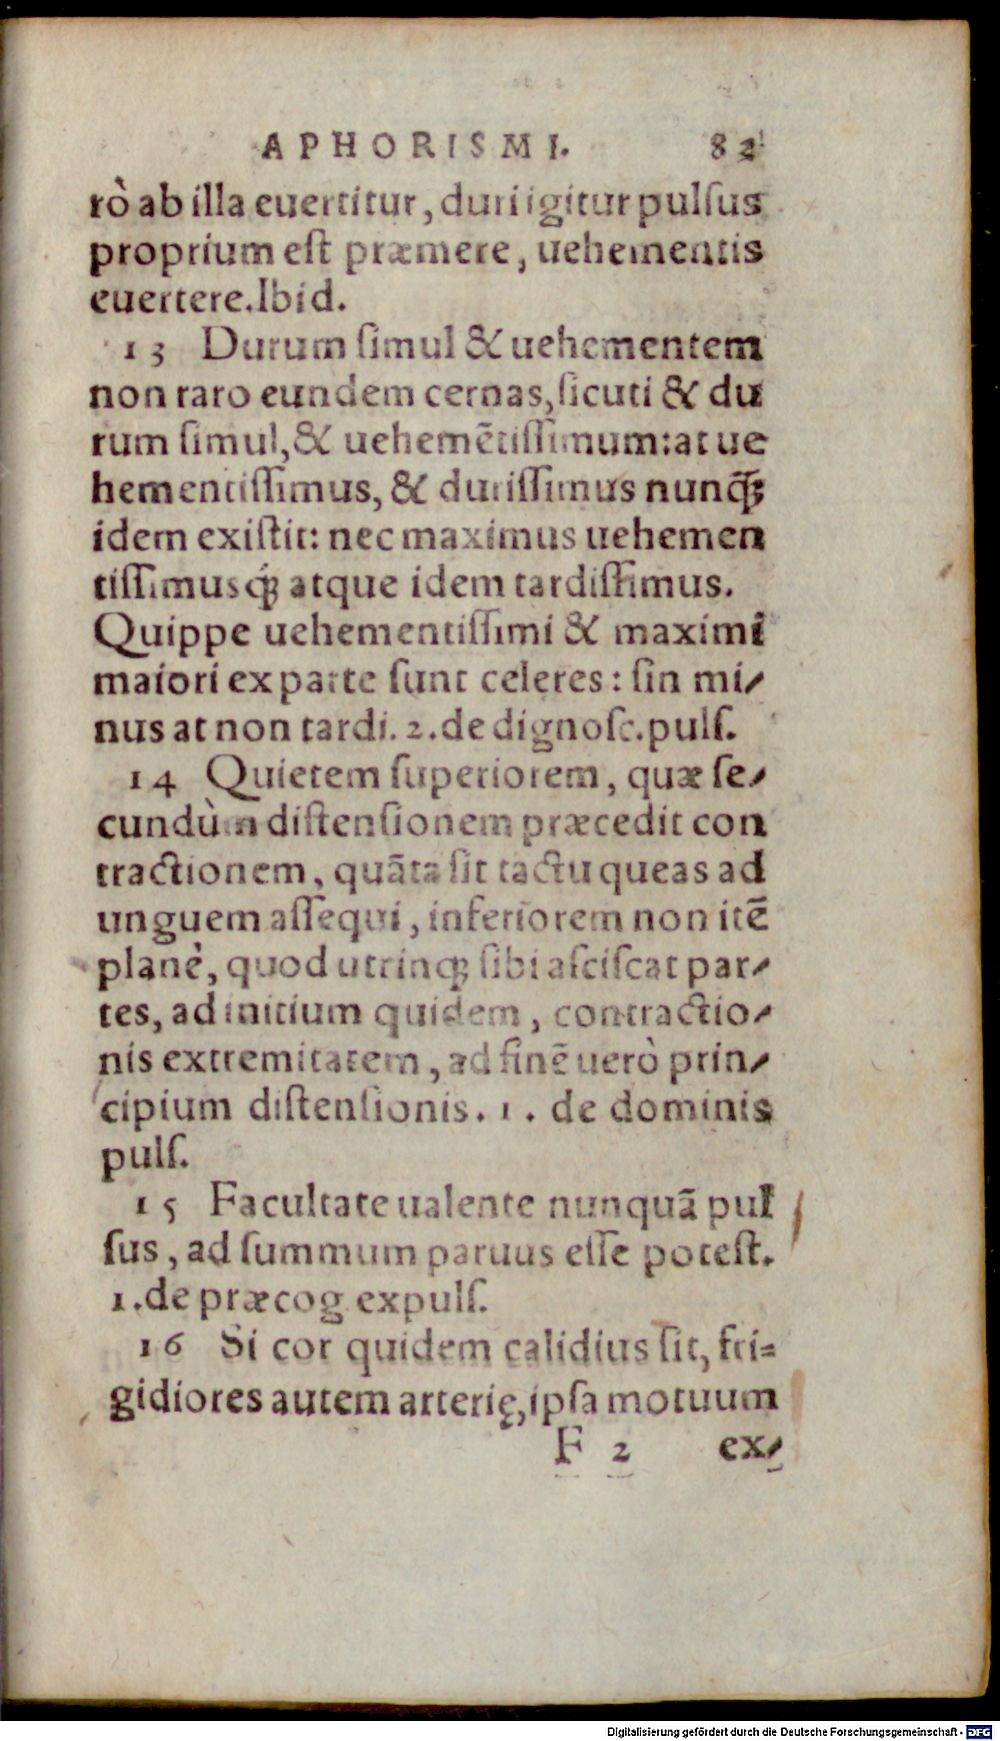 APHORISMI. 82
rò ab illa euertitur, duri igitur pulſus
proprium eſt præmere, uehementis
euertere. Ibid.
13 Durum ſimul & uehementem
non raro eundem cernas, ſicuti & du
rum ſimul, & uehemẽtiſſimum: at ue
hementiſſimus, & duriſſimus nunq̃ꝫ
idem exiſtit: nec maximus uehemen
tiſſimusq́ꝫ atque idem tardiſſimus.
Quippe uehementiſſimi & maximi
maiori ex parte ſunt celeres: ſin mi-
nus at non tardi. 2. de dignoſc. pulſ.
14 Quietem ſuperiorem, quæ ſe-
cundùm diſtenſionem præcedit con
tractionem, quãta ſit tactu queas ad
unguem aſſequi, inferiorem non itẽ
planè, quod utrinqꝫ ſibi aſciſcat par-
tes, ad initium quidem, contractio-
nis extremitatem, ad finẽ uerò prin-
cipium diſtenſionis. 1. de dominis
pulſ.
15 Facultate ualente nunquã pul
ſus, ad ſummum paruus eſſe poteſt.
1. de præcog expulſ.
16 Si cor quidem calidius ſit, fri-
gidiores autem arterię, ipſa motuum
F 2 ex-
Digitalisierung gefördert durch die Deutsche Forschungsgemeinschaft - DFG